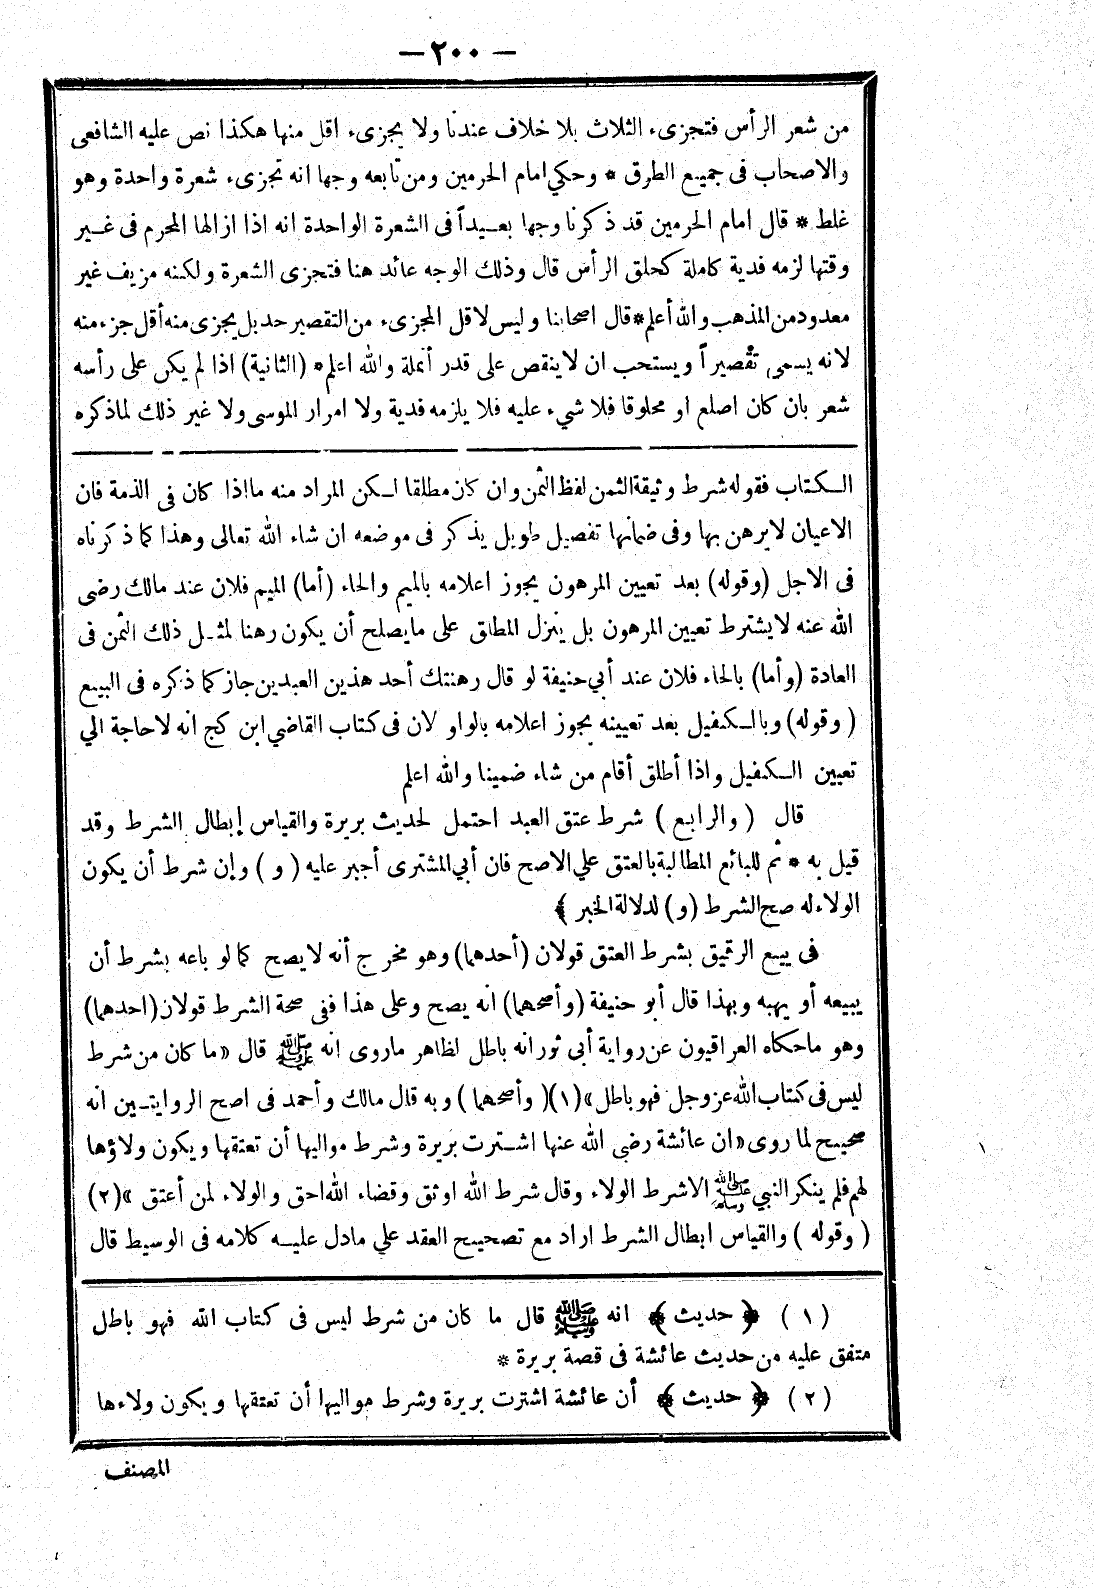 — ٢٠٠ —
من شعر الرأس فتجزىء الثلاث بلا خلاف عندنا ولا يجزىء اقل منها هكذا نص عليه الشافعى
والاصحاب فى جميع الطرق * وحكي امام الحرمين ومن تابعه وجها انه تجزىء شعرة واحدة وهو
غلط * قال امام الحرمين قد ذكرنا وجها بعيداً فى الشعرة الواحدة انه اذا ازالها المحرم فى غير
وقتها لزمه فدية كاملة كحلق الرأس قال وذلك الوجه عائد هنا فتجزى الشعرة ولكنه مزيف غير
معدود من المذهب والله أعلم * قال اصحابنا وليس لاقل المجزىء من التقصير حد بل يجزى منه أقل جزء منه
لانه يسمى تقصيراً ويستحب ان لا ينقص على قدر أنملة والله اعلم * (الثانية) اذا لم يكن على رأسه
شعر بان كان اصلع او محلوقا فلا شيء عليه فلا يلزمه فدية ولا امرار الموسى ولا غير ذلك لماذكره
الكتاب فقوله شرط وثيقة الثمن لفظ الثمن وان كان مطلقا لكن المراد منه مااذا كان فى الذمة فان
الاعيان لا يرهن بها وفى ضمانها تفصيل طويل يذكر فى موضعه ان شاء الله تعالى وهذا كما ذكرناه
فى الاجل (وقوله) بعد تعيين المرهون يجوز اعلامه بالميم والحاء (أما) الميم فلان عند مالك رضى
الله عنه لا يشترط تعيين المرهون بل ينزل المطلق على ما يصلح أن يكون رهنا لمثل ذلك الثمن فى
العادة (وأما) بالحاء فلان عند أبي حنيفة لو قال رهنتك أحد هذين العبدين جاز كما ذكره فى البيع
(وقوله) وبالكفيل بعد تعيينه يجوز اعلامه بالواو لان فى كتاب القاضي ابن كج انه لا حاجة الي
تعيين الكفيل واذا أطلق أقام من شاء ضمينا والله اعلم
قال (والرابع) شرط عتق العبد احتمل لحديث بريرة والقياس إبطال الشرط وقد
قيل به * ثم للبائع المطالبة بالعتق علي الاصح فان أبي المشترى أجبر عليه (و) وإن شرط أن يكون
الولاء له صح الشرط (و) لدلالة الخبر ﴾
فى بيع الرقيق بشرط العتق قولان (أحدهما) وهو مخرج أنه لا يصح كما لو باعه بشرط أن
يبيعه أو يهبه وبهذا قال أبو حنيفة (وأصحهما) انه يصح وعلى هذا ففى صحة الشرط قولان (احدهما)
وهو ماحكاه العراقيون عن رواية أبي ثور انه باطل لظاهر ماروى انه ﷺ قال «ما كان من شرط
ليس فى كتاب الله عز وجل فهو باطل» (١) (وأصحهما) وبه قال مالك وأحمد فى اصح الروايتين انه
صحيح لما روى «ان عائشة رضى الله عنها اشترت بريرة وشرط مواليها أن تعتقها ويكون ولاؤها
لهم فلم ينكر النبي ﷺ الا شرط الولاء وقال شرط الله اوثق وقضاء الله احق والولاء لمن أعتق» (٢)
(وقوله) والقياس ابطال الشرط اراد مع تصحيح العقد علي مادل عليه كلامه فى الوسيط قال
(١) ﴿ حديث ﴾ انه ﷺ قال ما كان من شرط ليس فى كتاب الله فهو باطل
متفق عليه من حديث عائشة فى قصة بريرة *
(٢) ﴿ حديث ﴾ أن عائشة اشترت بريرة وشرط مواليها أن تعتقها ويكون ولاءها
المصنف